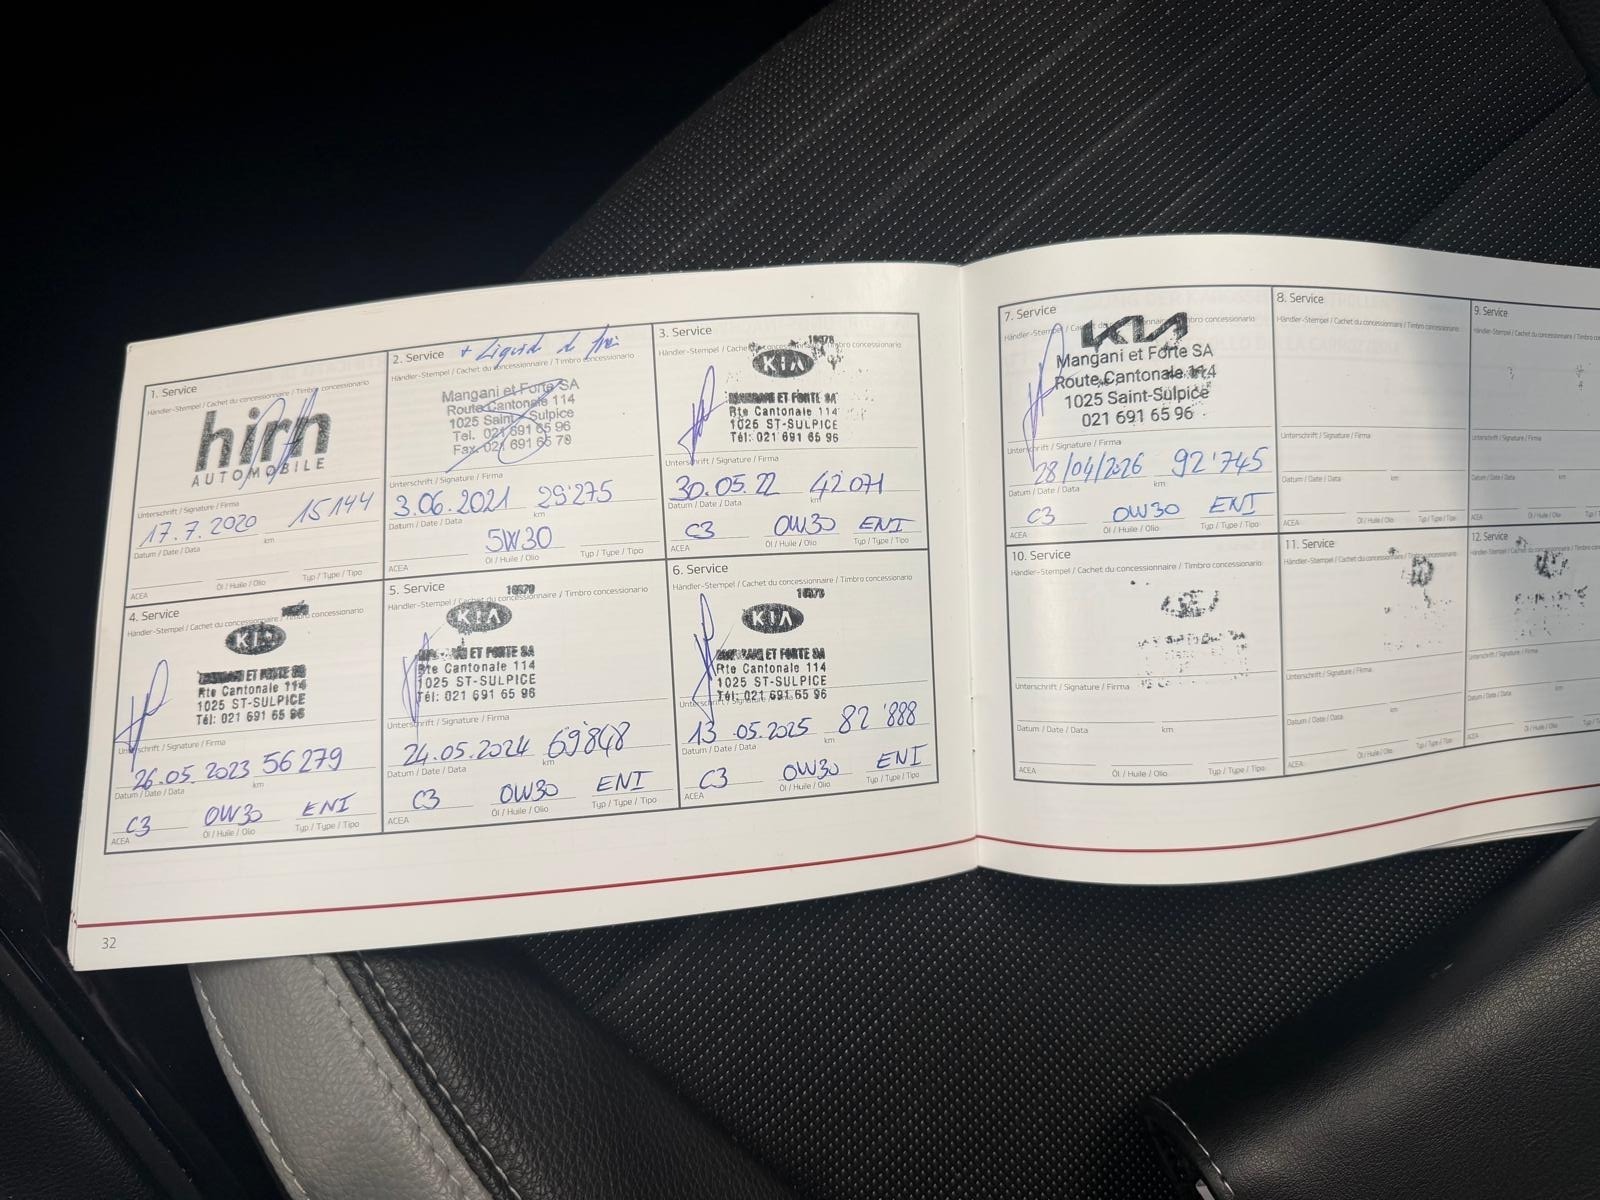 1. Service
Händler-Stempel / Cachet du concessionnaire / Timbro concessionario
hirn
AUTOMOBILE
Unterschrift / Signature / Firma
17.7.2020 15144
Datum / Date / Data km
ACEA Öl / Huile / Olio Typ / Type / Tipo
2. Service + Liquide de frein
Händler-Stempel / Cachet du concessionnaire / Timbro concessionario
Mangani et Forte SA
Route Cantonale 114
1025 Saint-Sulpice
Tel. 021 691 65 96
Fax. 021 691 65 78
Unterschrift / Signature / Firma
3.06.2021 29'275
Datum / Date / Data km
5W30
ACEA Öl / Huile / Olio Typ / Type / Tipo
3. Service
Händler-Stempel / Cachet du concessionnaire / Timbro concessionario
KIA
MANGANI ET FORTE SA
Rte Cantonale 114
1025 ST-SULPICE
Tél: 021 691 65 96
Unterschrift / Signature / Firma
30.05.22 42071
Datum / Date / Data km
C3 0W30 ENI
ACEA Öl / Huile / Olio Typ / Type / Tipo
4. Service
Händler-Stempel / Cachet du concessionnaire / Timbro concessionario
KIA
MANGANI ET FORTE SA
Rte Cantonale 114
1025 ST-SULPICE
Tél: 021 691 65 96
Unterschrift / Signature / Firma
26.05.2023 56279
Datum / Date / Data km
C3 0W30 ENI
ACEA Öl / Huile / Olio Typ / Type / Tipo
5. Service
Händler-Stempel / Cachet du concessionnaire / Timbro concessionario
KIA
MANGANI ET FORTE SA
Rte Cantonale 114
1025 ST-SULPICE
Tél: 021 691 65 96
Unterschrift / Signature / Firma
24.05.2024 69'848
Datum / Date / Data km
C3 0W30 ENI
ACEA Öl / Huile / Olio Typ / Type / Tipo
6. Service
Händler-Stempel / Cachet du concessionnaire / Timbro concessionario
KIA
MANGANI ET FORTE SA
Rte Cantonale 114
1025 ST-SULPICE
Tél: 021 691 65 96
Unterschrift / Signature / Firma
13.05.2025 82'888
Datum / Date / Data km
C3 0W30 ENI
ACEA Öl / Huile / Olio Typ / Type / Tipo
32
7. Service
Händler-Stempel / Cachet du concessionnaire / Timbro concessionario
KIA
Mangani et Forte SA
Route Cantonale 114
1025 Saint-Sulpice
021 691 65 96
Unterschrift / Signature / Firma
28/04/2026 92'745
Datum / Date / Data km
C3 0W30 ENI
ACEA Öl / Huile / Olio Typ / Type / Tipo
8. Service
Händler-Stempel / Cachet du concessionnaire / Timbro concessionario
Unterschrift / Signature / Firma
Datum / Date / Data km
ACEA Öl / Huile / Olio Typ / Type / Tipo
9. Service
Händler-Stempel / Cachet du concessionnaire
Unterschrift / Signature / Firma
Datum / Date / Data km
ACEA Öl / Huile / Olio
10. Service
Händler-Stempel / Cachet du concessionnaire / Timbro concessionario
Unterschrift / Signature / Firma
Datum / Date / Data km
ACEA Öl / Huile / Olio Typ / Type / Tipo
11. Service
Händler-Stempel / Cachet du concessionnaire / Timbro concessionario
Unterschrift / Signature / Firma
Datum / Date / Data km
ACEA Öl / Huile / Olio Typ / Type / Tipo
12. Service
Händler-Stempel / Cachet du concessionnaire / Timbro
Unterschrift / Signature / Firma
Datum / Date / Data km
ACEA Öl / Huile / Olio